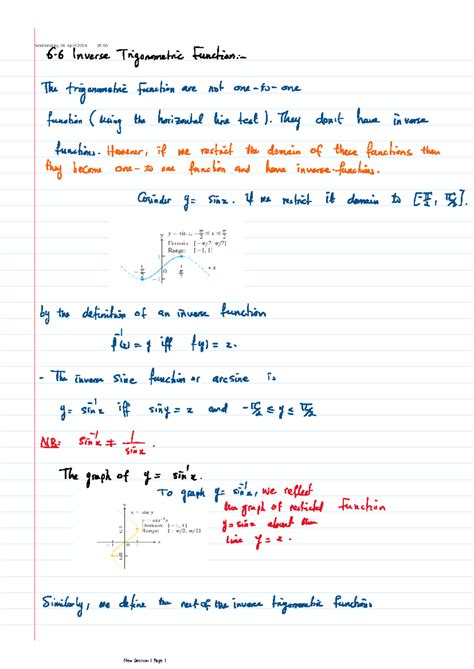 Wednesday, 03 April 2024 07:00
6.6 Inverse Trigonometric Function:-
The trigonometric function are not one-to-one
function (using the horizontal line test). They don't have inverse
functions. However, if we restrict the domain of these functions then
they become one-to one function and have inverse-functions.
Consider y = sinx. if we restrict it domain to [-π/2, π/2].
y = sin x, -π/2 ≤ x ≤ π/2
Domain: [-π/2, π/2]
Range: [-1, 1]
by the definition of an inverse function
f⁻¹(x) = y iff f(y) = x.
- The inverse sine function or arcsine is
y = sin⁻¹x iff siny = x and -π/2 ≤ y ≤ π/2
NB: sin⁻¹x ≠ 1/sinx.
The graph of y = sin⁻¹x.
To graph y = sin⁻¹x, we reflect
the graph of restricted function
y = sinx about the
line y = x.
x = sin y
y = sin⁻¹x
Domain: [-1, 1]
Range: [-π/2, π/2]
Similarly, we define the rest of the inverse trigonometric functions
New Section 1 Page 1